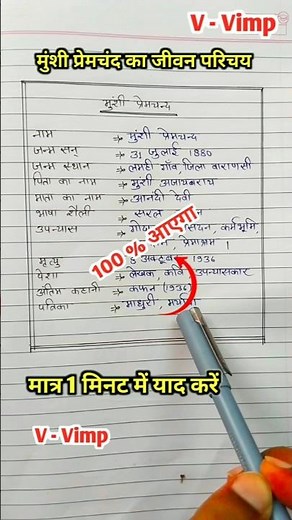 V - Vimp
मुंशी प्रेमचंद का जीवन परिचय
मुंशी प्रेमचन्द
नाम → मुंशी प्रेमचन्द
जन्म सन् → 31 जुलाई 1880
जन्म स्थान → लमही गाँव, जिला वाराणसी
पिता का नाम → मुंशी अजायबराय
माता का नाम → आनंदी देवी
भाषा शैली → सरल
उपन्यास → कर्मभूमि,
प्रेमाश्रम ।
100 % आएगा
मृत्यु → 8 1936
पेशा → लेखक, कवि, उपन्यासकार
अंतिम कहानी → कफन (1936)
पत्रिका → माधुरी,
मात्र 1 मिनट में याद करें
V - Vimp